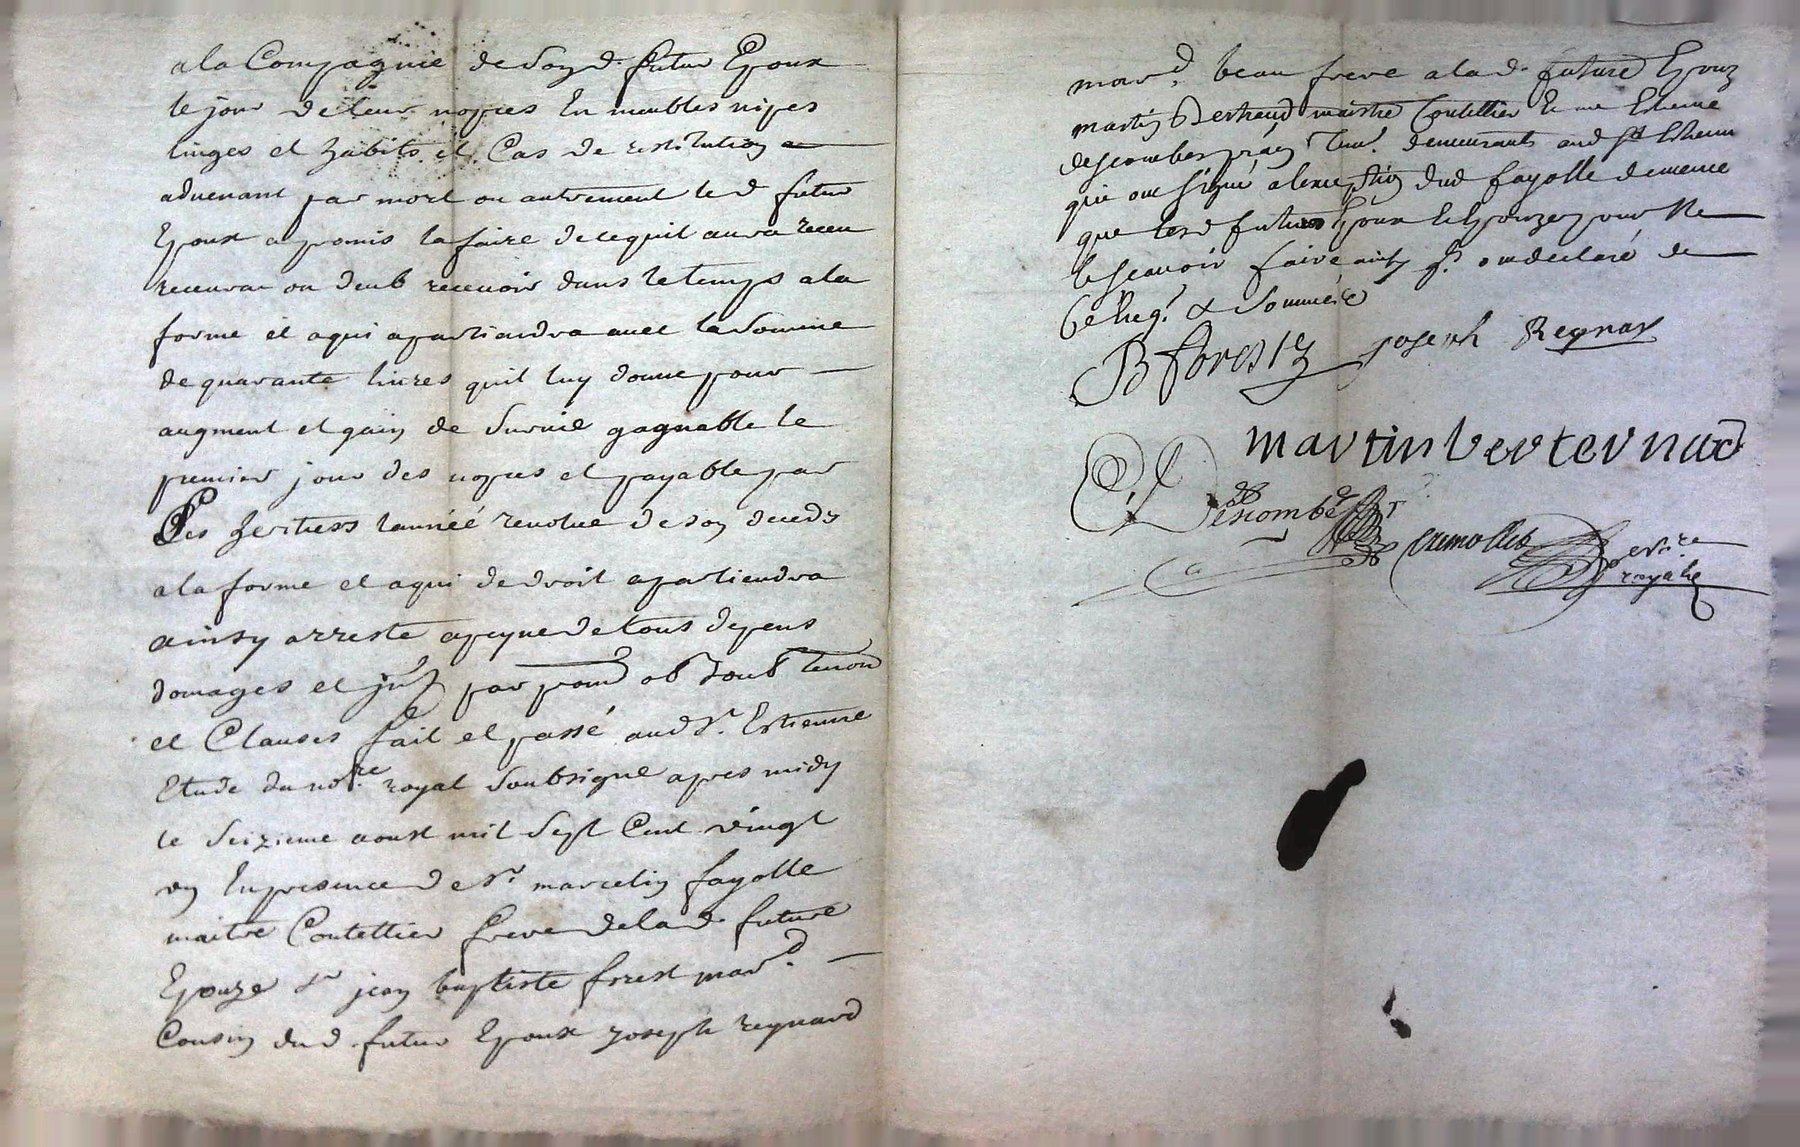 a la Compagnie de Soy d. futur Epoux
le jour de leur nopces En meubles nipes
linges et habits et Cas de restitution
advenant par mort ou autrement le d futur
Epoux a promis la faire de ce quil aura receu
recevra ou deub recevoir dans le temps a la
forme et a qui apartiendra avec la Somme
de quarante livres quil luy donne pour
augment et gain de Survie gagnable le
premier jour des nopces et payable par
Ses heritiers lannéé revolue de son deceds
a la forme et a qui de droit apartiendra
ainsy arreste a peyne de tous depens
domages et par ob Soub
et Clauses fait et passé aud St. Estienne
Etude du nore. royal Soubsigne apres midy
le Seizieme aoust mil Sept Cent vingt
un En presence de Sr. marcelin fayolle
maitre Coutellier frere de la d. future
Epouze Sr jean baptiste forest mard.
Cousin dud. futur Epoux joseph reynard
mard. beau frere a la d. future Epouze
martin Bertrand maistre Coutellier Estienne
descombes demeurants aud St Estienne
qui ont Signé a lexception dud fayolle de meme
que lesd futurs Epoux Et Epouze pour Ne
le Scavoir faire ainsy ont declaré de
Ce Req. & Sommés
B forest joseph Reynar
martin verternad
Descombes
not.re
royal